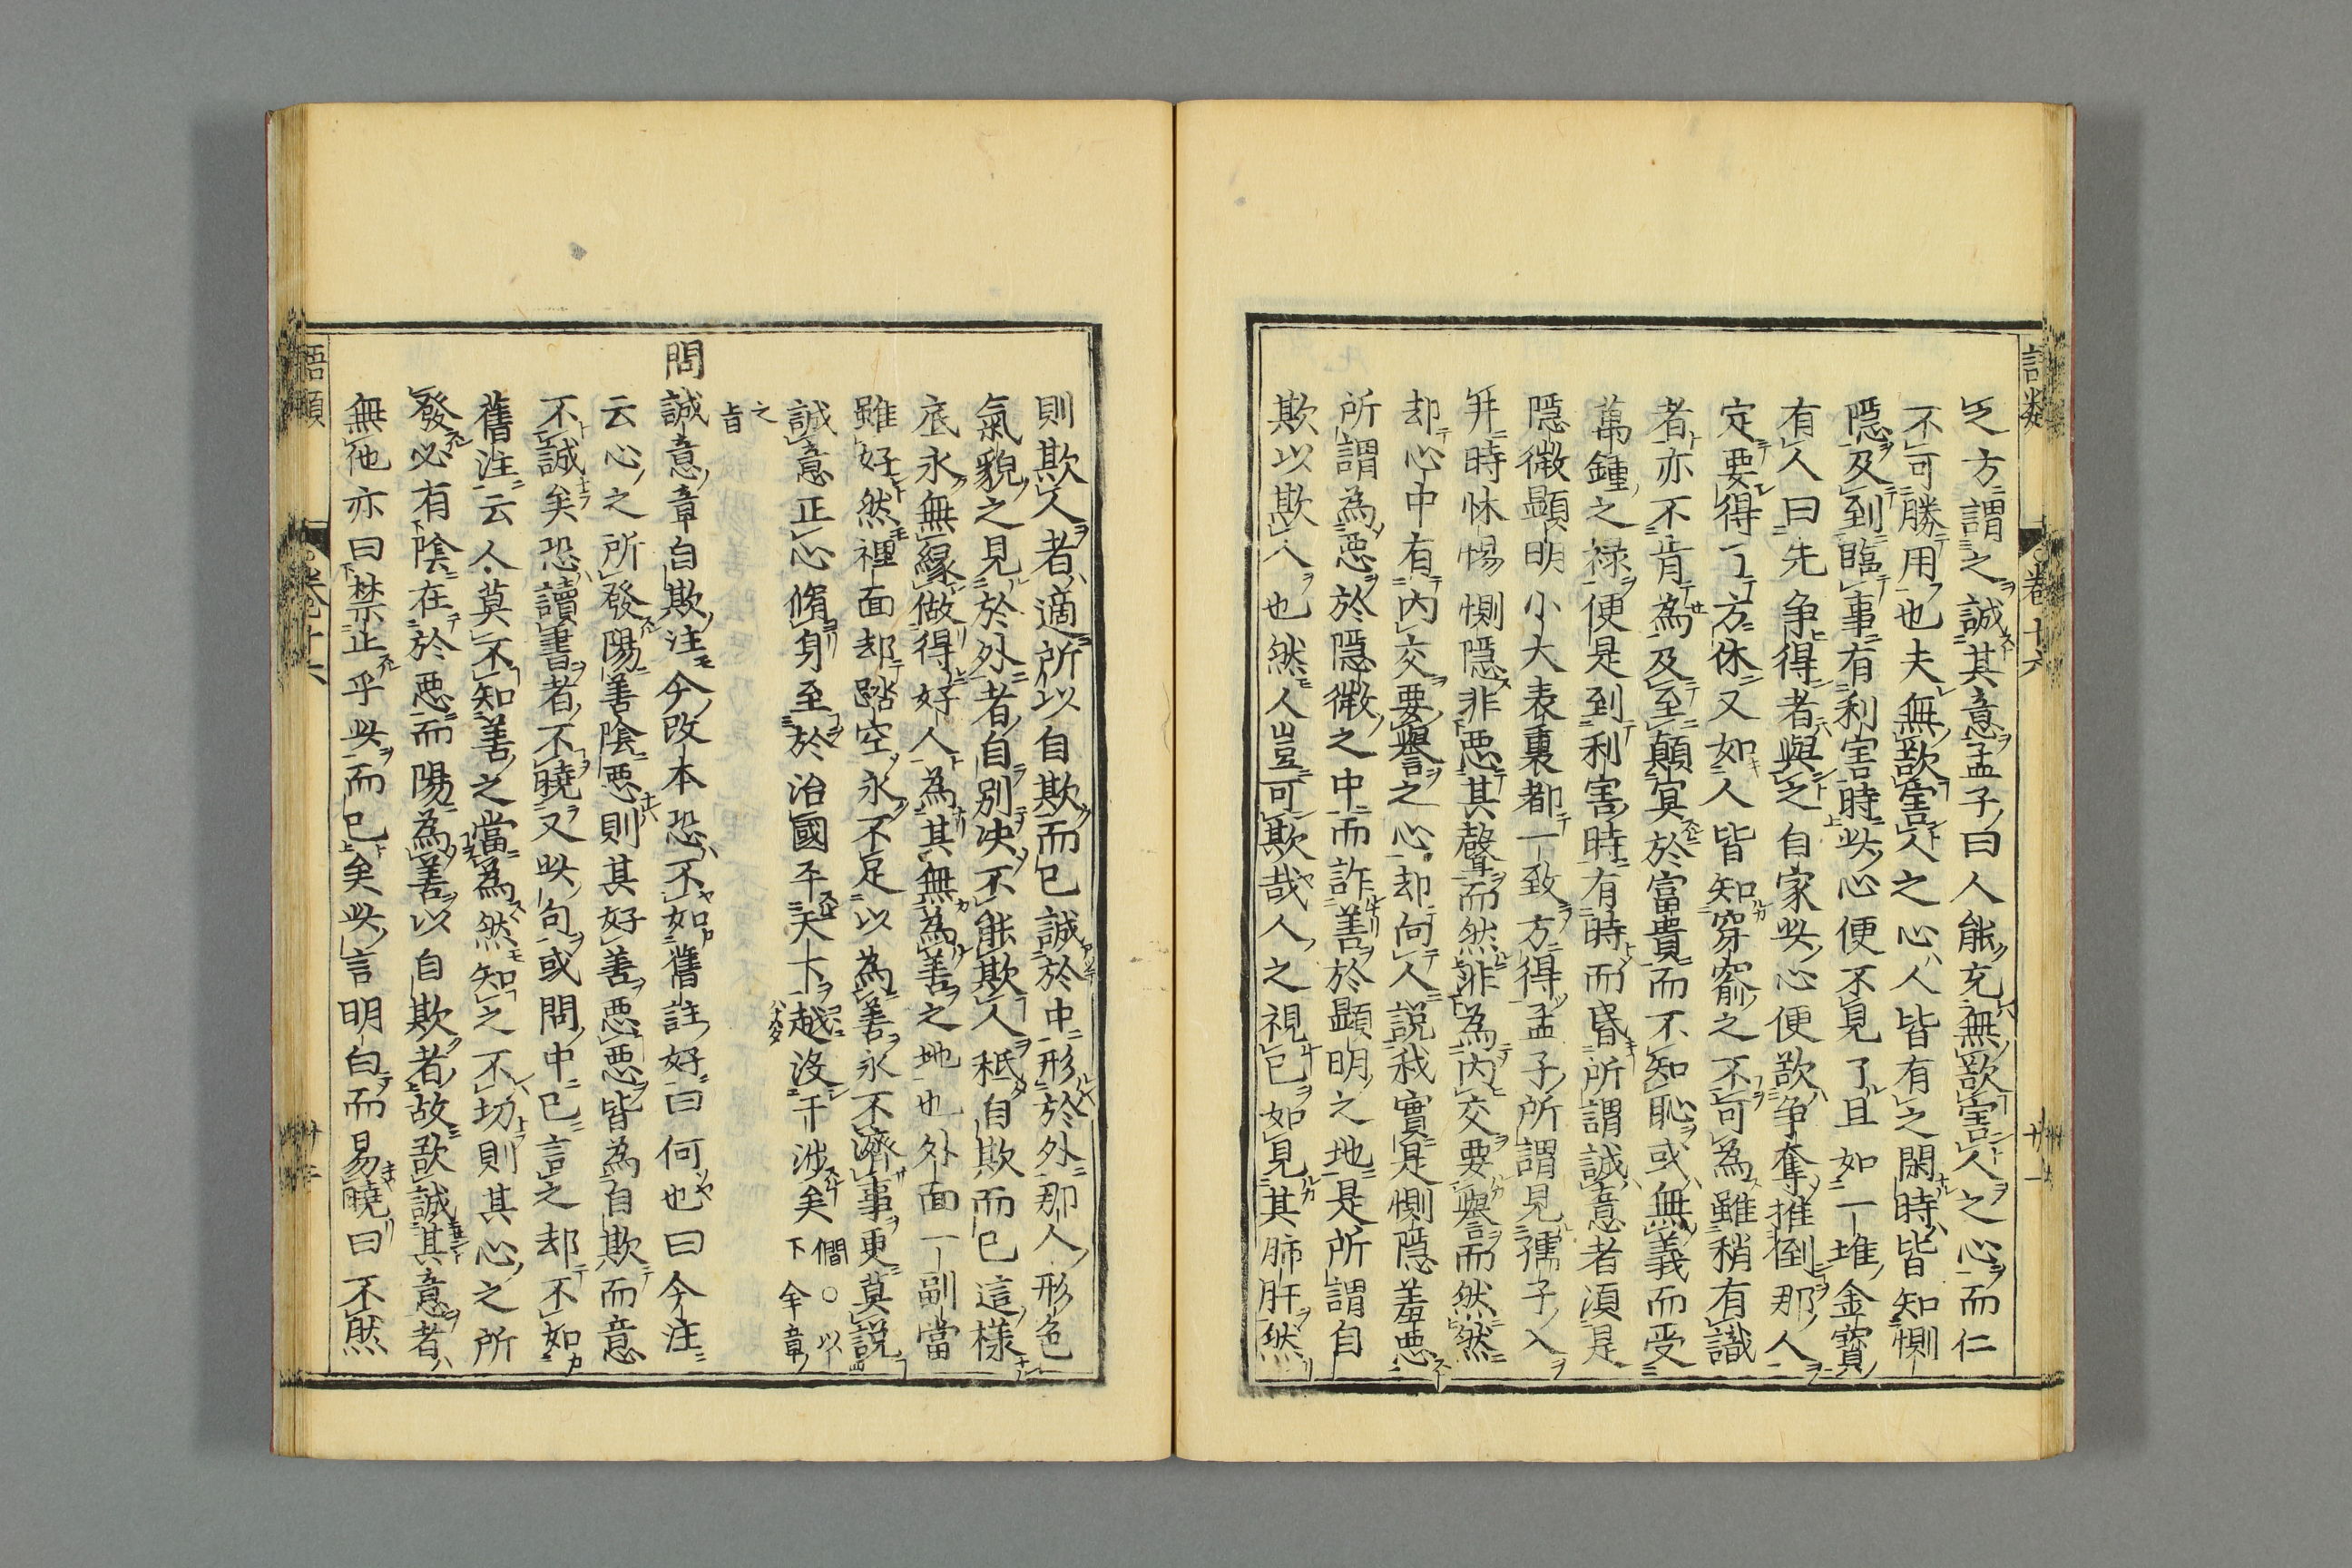 語類 卷十六 廿一
之方謂之誠其意孟子曰人能充無欲害人之心而仁
不可勝用也夫無欲害人之心人皆有之閑時皆知惻
隱及到臨事有利害時此心便不見了且如一堆金寶
有人曰先争得者與之自家此心便欲争奪推倒那人
定要得了方休又如人皆知穿窬之不可為雖稍有識
者亦不肯為及至顛冥於富貴而不知恥或無義而受
萬鍾之禄便是到利害時有時而昏所謂誠意者須是
隱微顯明小大表裏都一致方得孟子所謂見孺子入
井時怵惕惻隱非惡其聲而然非為内交要譽而然然
却心中有内交要譽之心却向人説我實是惻隱羞惡
所謂為惡於隱微之中而詐善於顯明之地是所謂自
欺以欺人也然人豈可欺哉人之視已如見其肺肝然
則欺人者適所以自欺而已誠於中形於外那人形色
氣貌之見於外者自别决不能欺人秪自欺而已這樣
底永無緣做得好人為其無為善之地也外面一副當
雖好然裡面却踏空永不足以為善永不濟事更莫説
誠意正心脩身至於治國平天下越没干涉矣 僩○以下全章
之旨
問誠意章自欺注今改本恐不如舊註好曰何也曰今注
云心之所發陽善陰惡則其好善惡惡皆為自欺而意
不誠矣恐讀書者不曉又此句或問中已言之却不如
舊注云人莫不知善之當為然知之不切則其心之所
發必有陰在於惡而陽為善以自欺者故欲誠其意者
無他亦曰禁止乎此而已矣此言明白而易曉曰不然
語類 卷之十六 廿二